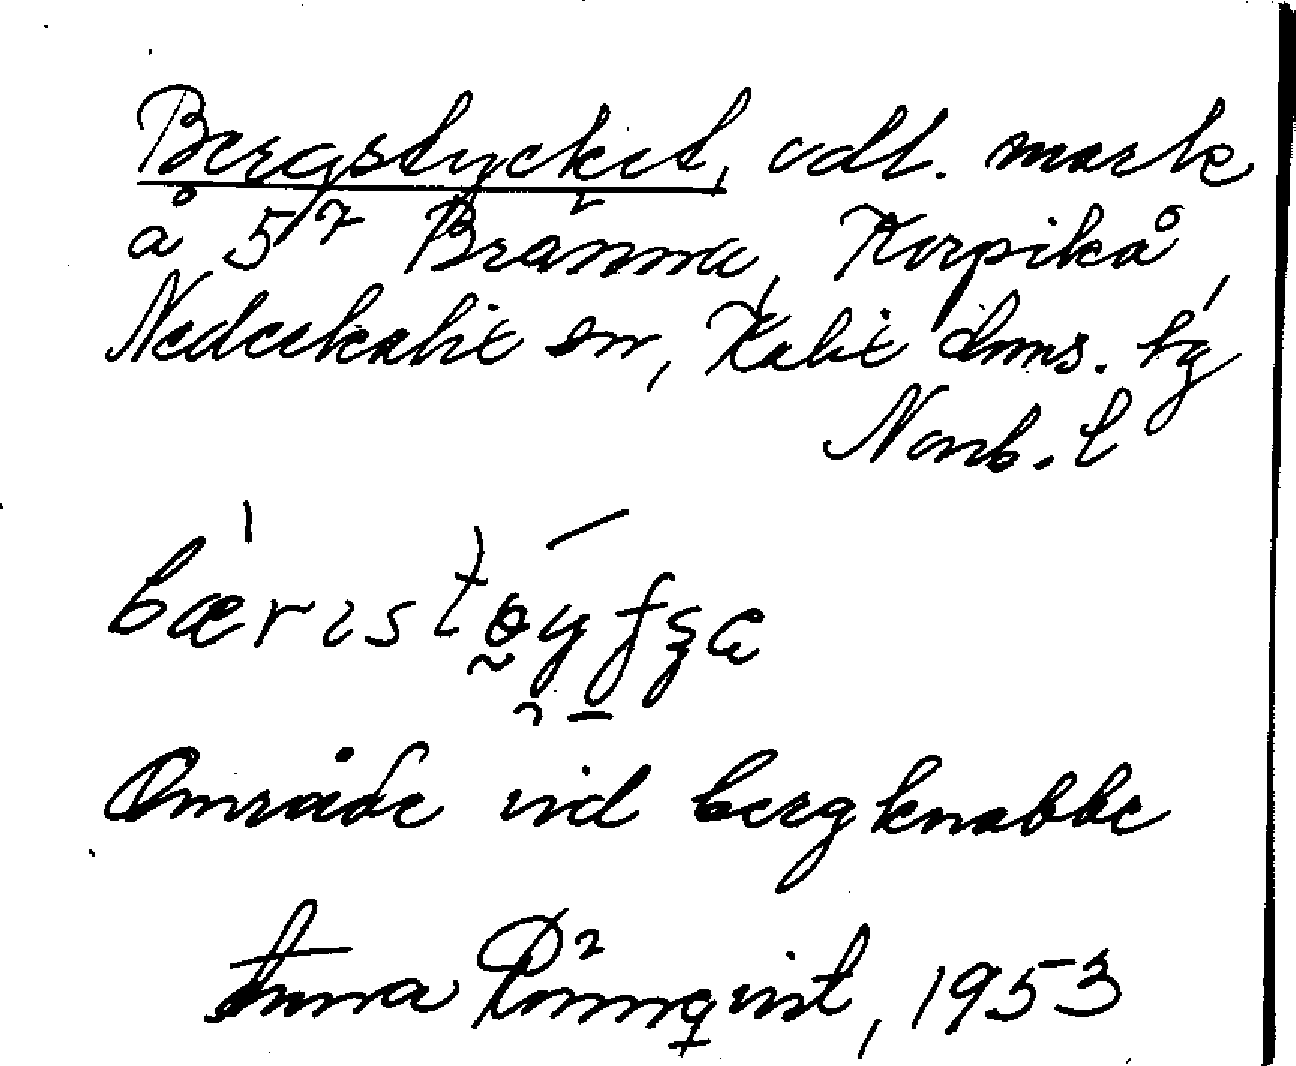 Bergstycket, odl. mark
å 5/7 Bränna, Korpikå,
Nederkalix sn, Kalix doms. by
Norrb. l
Område vid bergknabbe
Anna Rönnqvist, 1953